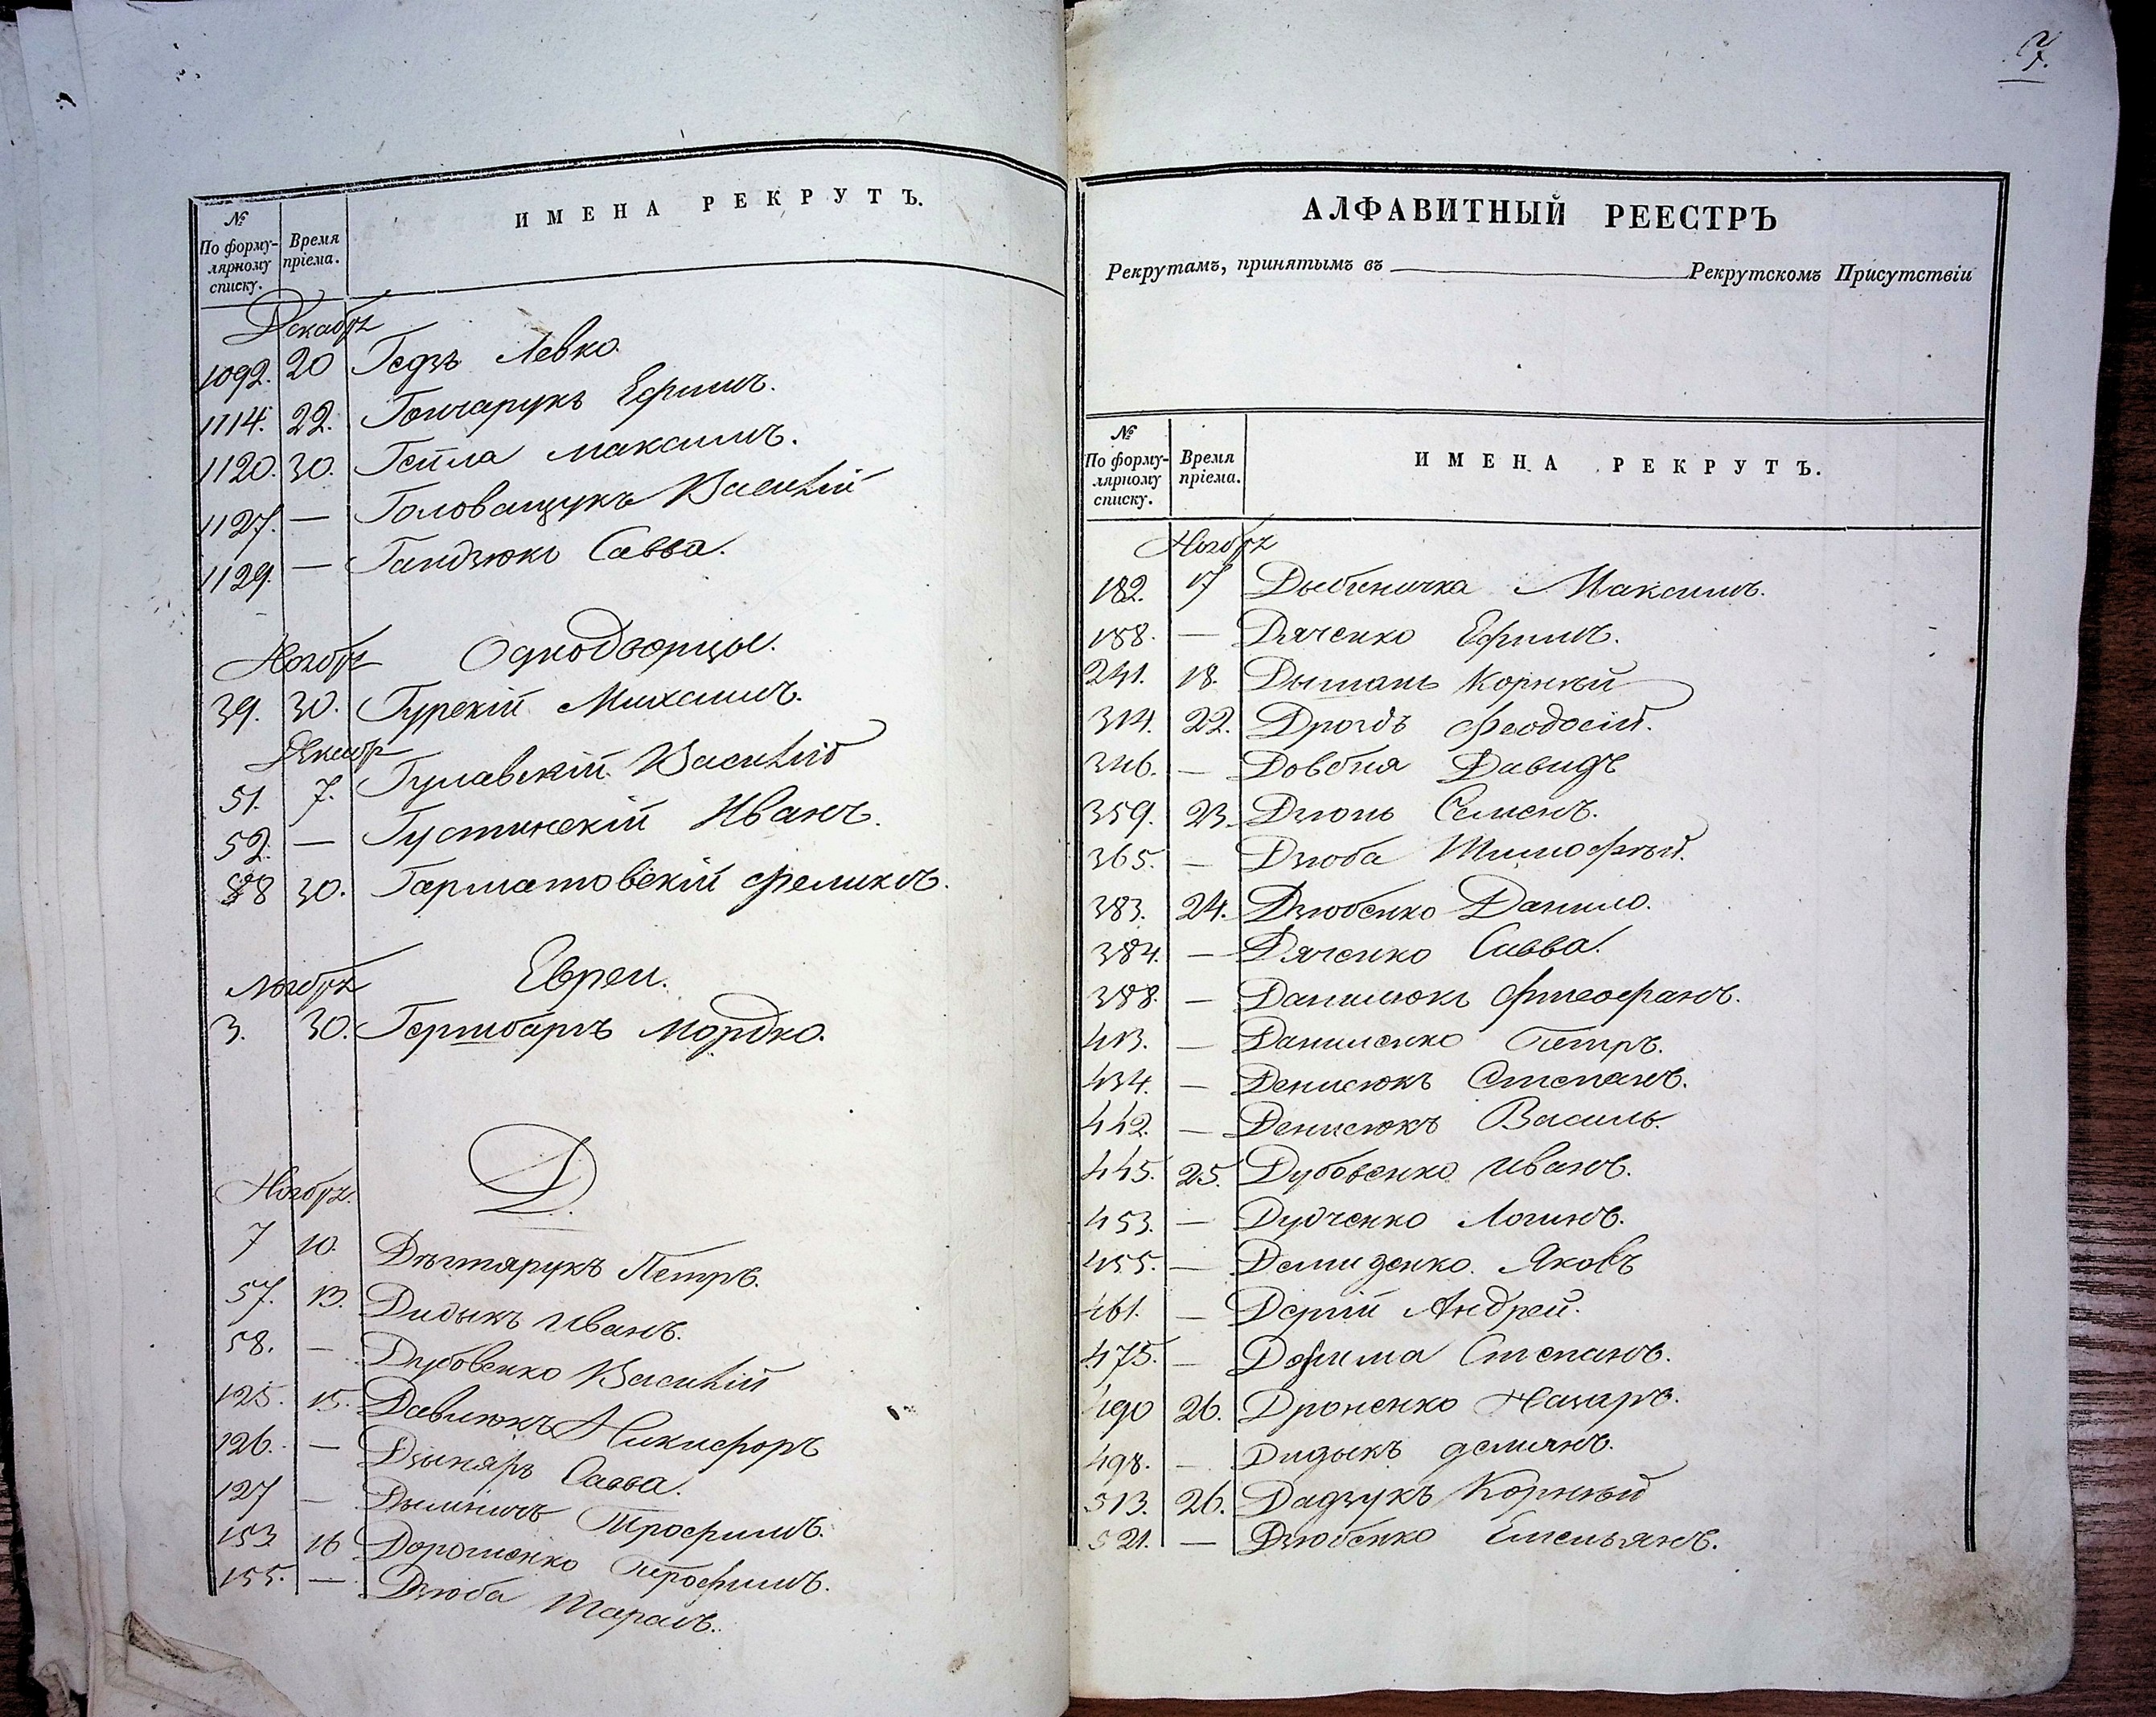 № По формулярному списку. Время пріема. ИМЕНА РЕКРУТЪ.
Декабрь
1092. 20 Гедзъ Левко.
1114. 22. Гончарукъ Ефимъ.
1120. 30. Гейла Максимъ.
1127. — Головащукъ Василій
1129. — Гандзюкъ Савва.
Ноябрь Однодворцы.
39. 30. Гурскій Михаилъ.
Декабр
51. 7. Гулавскій Василій
52. — Густинскій Иванъ.
88 30. Гарматовскій Феликсъ.
Ноябрь Евреи.
3. 30. Гершбаръ Мордко.
Д.
Ноябрь.
7 10. Дѣгтярукъ Петръ.
57. 13. Дидыкъ Иванъ.
58. — Дубовенко Василій
125. 15. Давлюкъ Никифоръ
126. — Дзыняръ Савва.
127 — Трофимъ.
153 16 Дорошенко Трофимъ.
155. — Дзюба Тарасъ.
7.
АЛФАВИТНЫЙ РЕЕСТРЪ
Рекрутамъ, принятымъ въ Рекрутскомъ Присутствіи
№ По формулярному списку. Время пріема. ИМЕНА РЕКРУТЪ.
Ноябрь
182. 17 Максимъ.
188. — Дяченко Ефимъ.
241. 18. Дышань Корнѣй
314. 22. Дроздъ Феодосій.
346. — Довбня Давидъ
359. 23. Дзюнь Семенъ.
365. — Дзюба Тимофѣй.
383. 24. Дзюбенко Данило.
384. — Дяченко Савва.
388. — Данилюкъ Фтеофанъ.
413. — Даниленко Петръ.
434. — Денисюкъ Степанъ.
442. — Денисюкъ Василь.
445. 25. Дубовенко Иванъ.
453. — Дудченко Логинъ.
455. — Демиденко Яковъ
461. — Дерій Андрей.
475. — Степанъ.
490 26. Дроненко Назаръ.
498. — Дидыкъ Демянъ.
513. 26. Дадзукъ Корнѣй
521. — Дзюбенко Емельянъ.